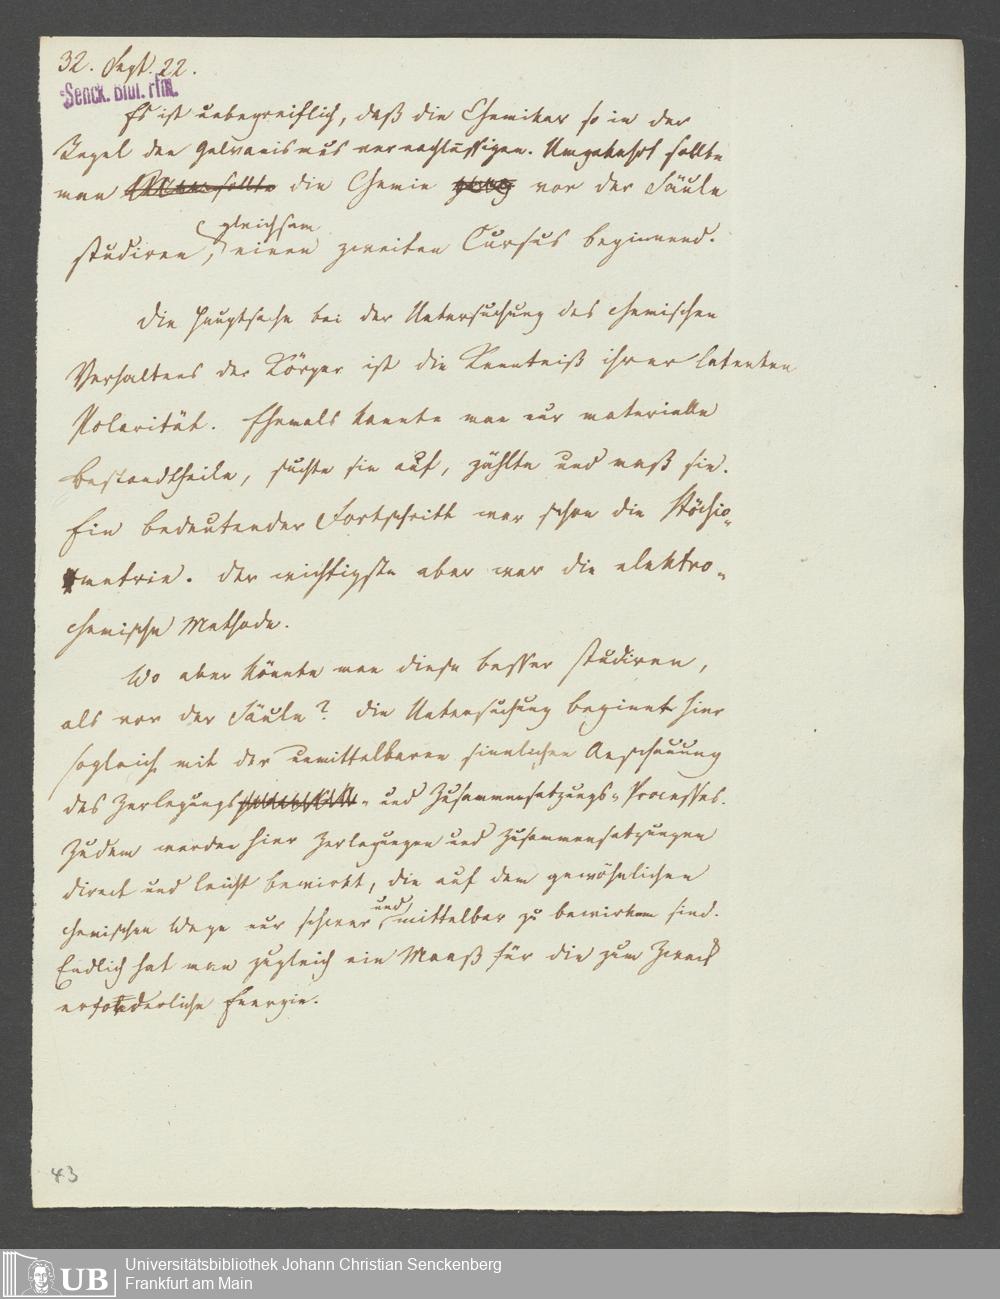 32. Sept. 22.
Senck. Bibl. Ffm.
Es ist unbegreiflich, daß die Chemiker so in der
Regel den Galvanismus vernachlässigen. Umgekehrt sollte
man die Chemie vor der Säule
gleichsam
studiren, einen zweiten Cursus beginnend.
Die Hauptsache bei der Untersuchung des chemischen
Verhaltens der Körper ist die Kenntniß ihrer latenten
Polarität. Ehemals kannte man nur materielle
Bestandtheile, suchte sie auf, zählte und maß sie.
Ein bedeutender Fortschritt war schon die Stöchio-
metrie. Der wichtigste aber war die elektro-
chemische Methode.
Wo aber könnte man diese besser studiren,
als vor der Säule? Die Untersuchung beginnt hier
sogleich mit der unmittelbaren sinnlichen Anschauung
des Zerlegungs- und Zusammensetzungs-Processes.
Zudem werden hier Zerlegungen und Zusammensetzungen
direct und leicht bewirkt, die auf dem gewöhnlichen
und
chemischen Wege nur schwer mittelbar zu bewirken sind.
Endlich hat man zugleich ein Maaß für die zum Zweck
erforderliche Energie.
43
UB
Universitätsbibliothek Johann Christian Senckenberg
Frankfurt am Main